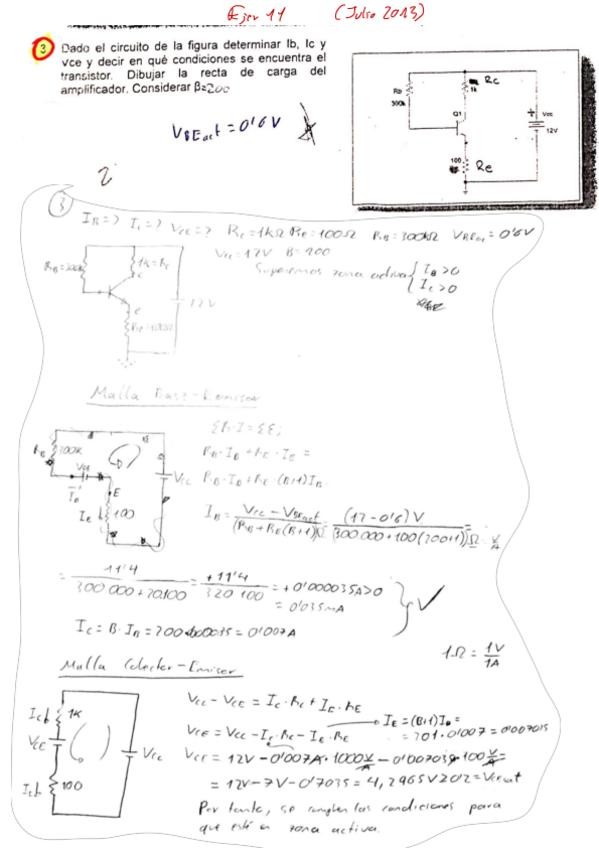 Ejer 11 (Julio 2013)
3 Dado el circuito de la figura determinar Ib, Ic y
vce y decir en qué condiciones se encuentra el
transistor. Dibujar la recta de carga del
amplificador. Considerar β=200
V_BEact = 0'6V
Rb
300k
Rc
1k
Q1
Vcc
12V
100
Re
2
3 I_B=>? I_C=>? V_CE=>? R_C=1kΩ R_E=100Ω R_B=300kΩ V_BEact=0'6V
V_CC=12V B=200
Suponemos zona activa { I_B>0
I_C>0
R_B=300k
1k=R_C
C
e
R_E=100Ω
12V
Malla Base-Emisor
ΣR·I=ΣE;
R_B·I_B+R_E·I_E=
R_B·I_B+R_E·(B+1)I_B
R_B
300k
I_B
E
I_E 100
V_CC
I_B = (V_CC - V_BEact) / (R_B+R_E(B+1))Ω = (12-0'6)V / (300.000+100(200+1))Ω =
= 11'4 / (300.000+20.100) = +11'4 / 320.100 = +0'000035A>0
= 0'035mA
I_C = B·I_B = 200·0'000035 = 0'007A
1Ω = 1V/1A
Malla Colector-Emisor
I_C 1K
V_CE
I_E 100
V_CC
V_CC - V_CE = I_C·R_C + I_E·R_E
V_CE = V_CC - I_C·R_C - I_E·R_E → I_E = (B+1)I_B =
= 201·0'007 = 0'007035
V_CE = 12V - 0'007A·1000V/A - 0'007035·100V/A =
= 12V - 7V - 0'7035 = 4,2965V≥0'2 = V_CEsat
Por tanto, se cumplen las condiciones para
que esté en zona activa.